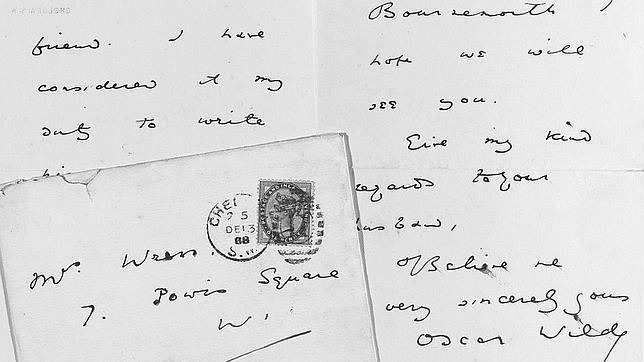 friend. I have
considered it my
duty to write
Bournemouth I
hope we will
see you.
Give my kind
regards to your
husband,
Believe me
very sincerely yours
Oscar Wilde
CHEL
25
DE 13
88
S.W.
Mrs.
7. Powis Square
W.